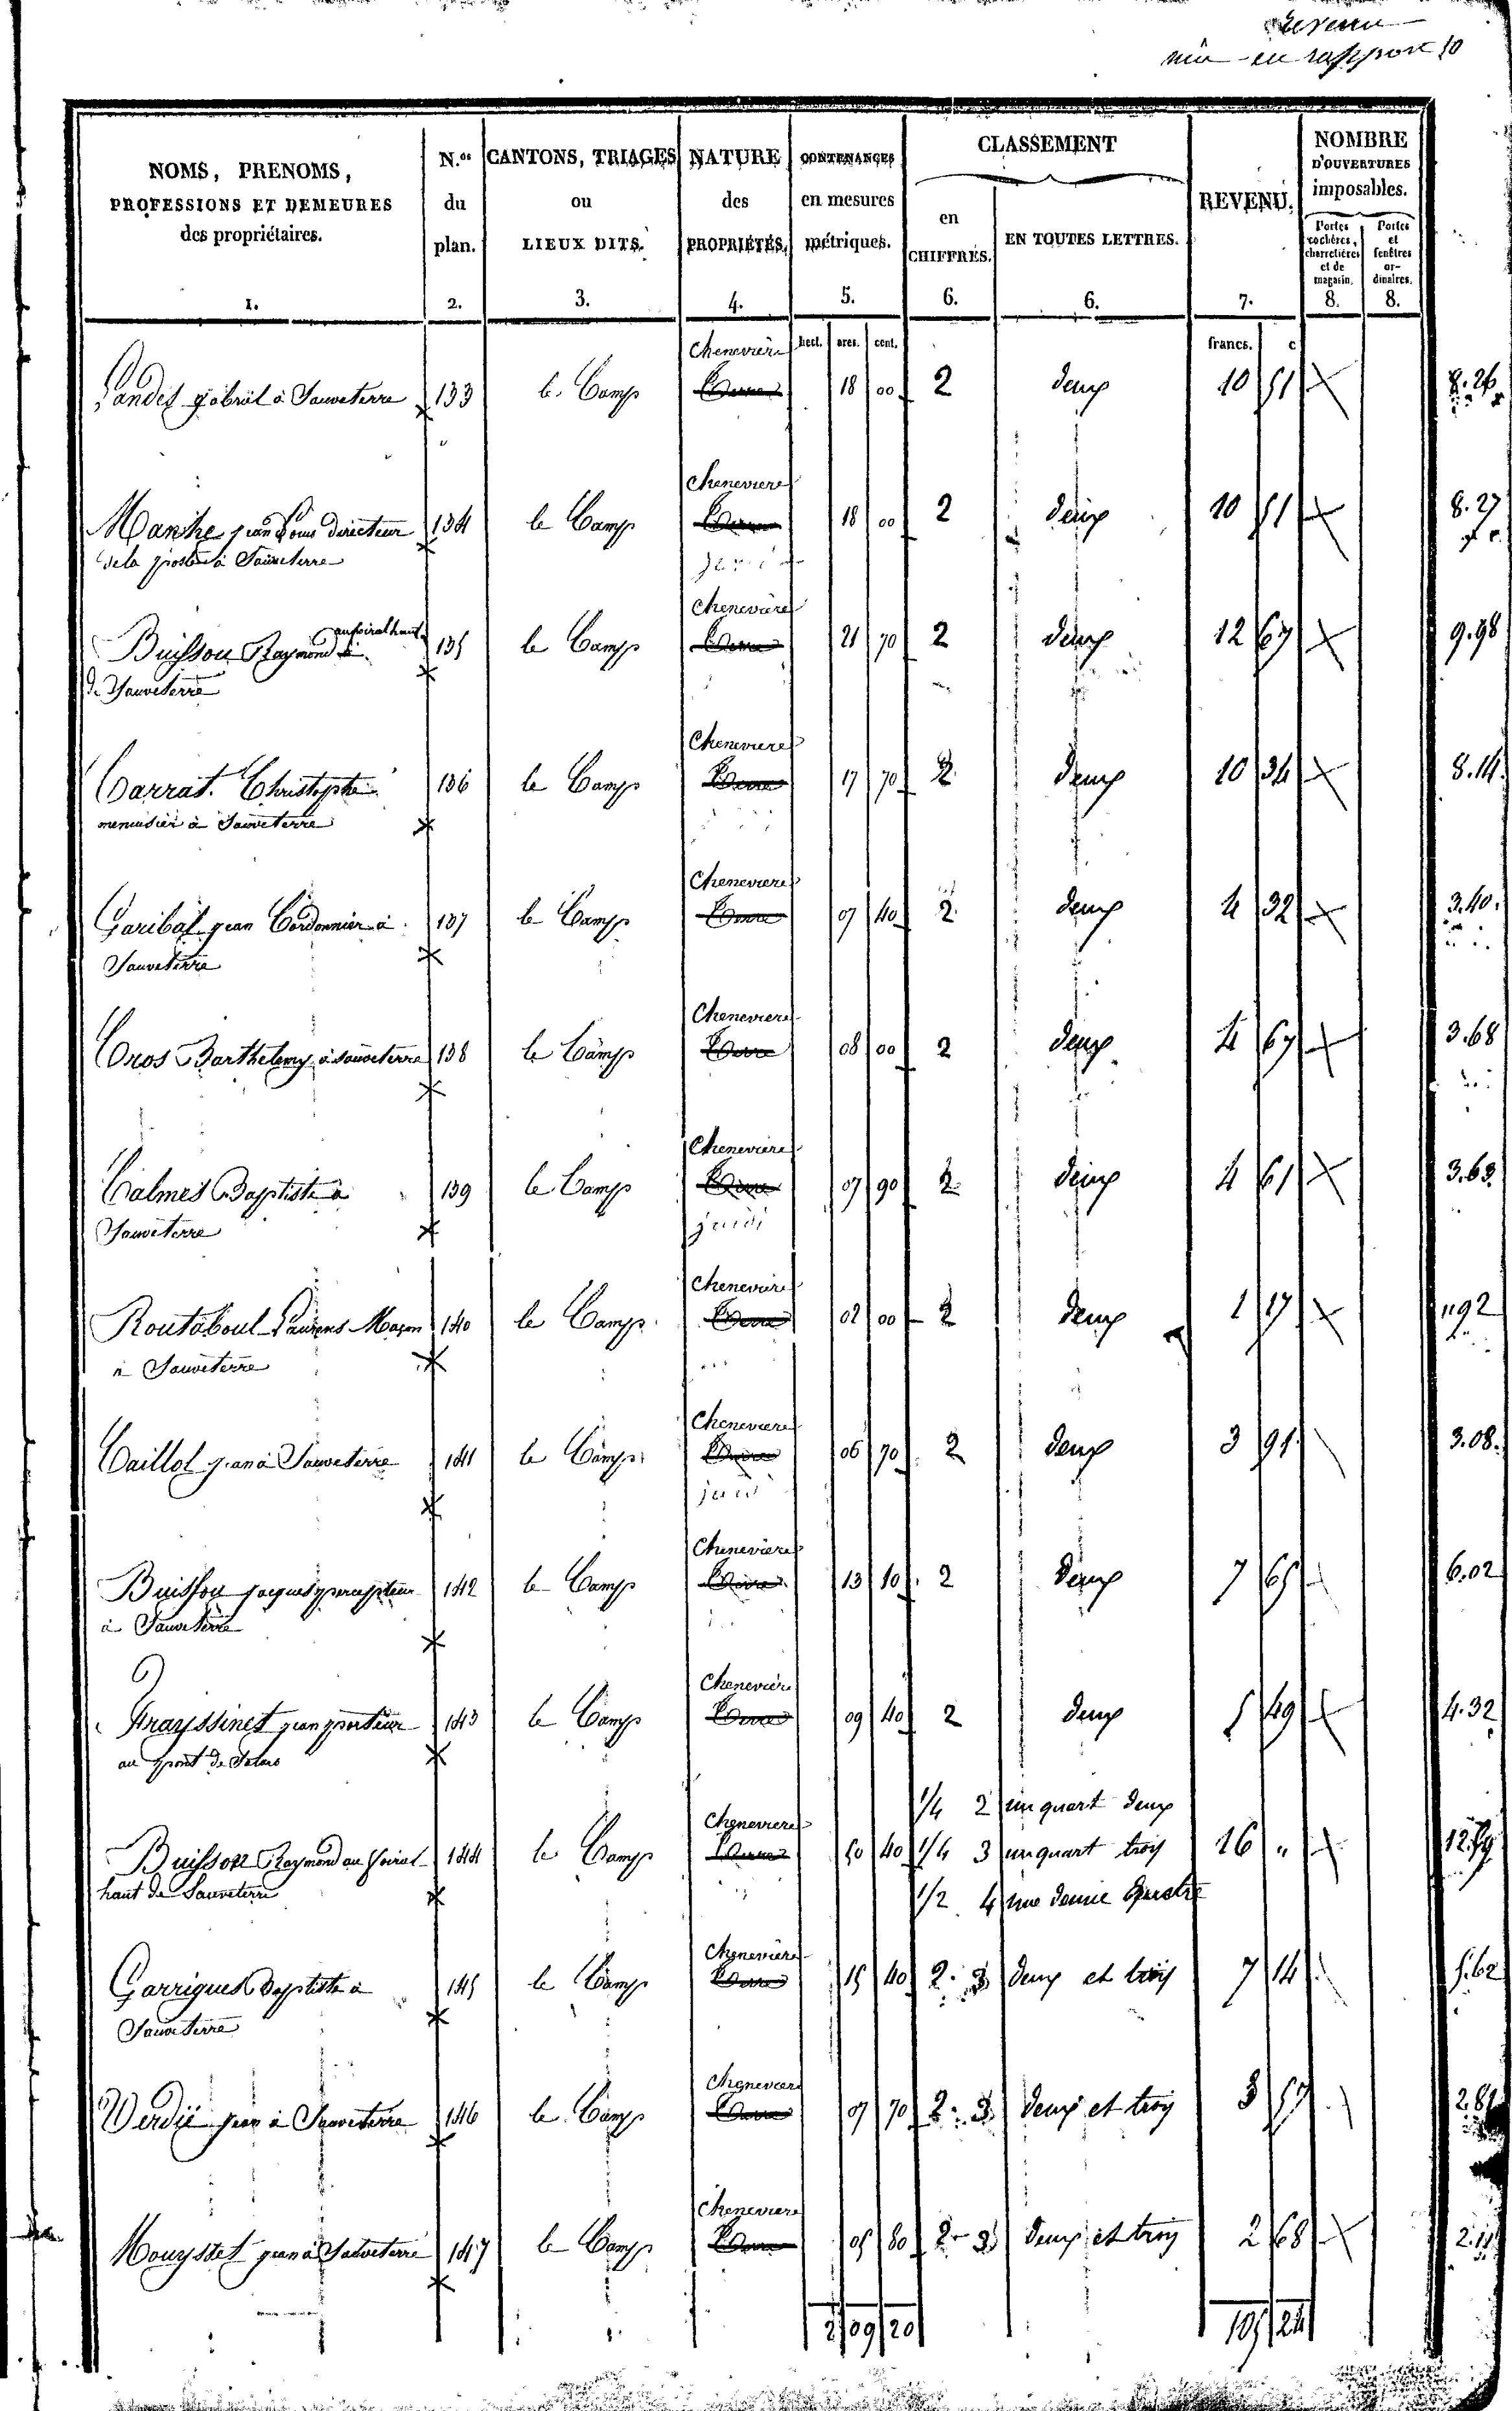 Revenu
mis en rapport 10
NOMS, PRENOMS, PROFESSIONS ET DEMEURES des propriétaires. 1.
N.os du plan. 2.
CANTONS, TRIAGES ou LIEUX DITS. 3.
NATURE des PROPRIÉTÉS. 4.
CONTENANCES en mesures métriques. 5.
CLASSEMENT
en CHIFFRES. 6.
EN TOUTES LETTRES. 6.
REVENU. 7.
NOMBRE D'OUVERTURES imposables.
Portes cochères, charretières et de magasin. 8.
Portes et fenêtres ordinaires. 8.
hect. ares. cent. francs. c
Cheneviere
Landes gabriel à Sauveterre 133 le Camp Terre 18 00 2 deux 10 51 8.26
Cheneviere
Manhe jean Louis directeur 134 le Camp Terre 18 00 2 deux 10 51 8.27
de la poste à Sauveterre
Cheneviere
Buisson Raymond au foiral haut 135 le Camp Terre 21 70 2 deux 12 67 9.98
de Sauveterre
Cheneviere
Carrat Christophe 136 le Camp Terre 17 70 2 deux 10 34 8.14
menuisier à Sauveterre
Cheneviere
Garibal jean Cordonnier à 137 le Camp Terre 07 40 2 deux 4 32 3.40
Sauveterre
Cheneviere
Cros Barthelemy à Sauveterre 138 le Camp Terre 08 00 2 deux 4 67 3.68
Cheneviere
Calmes Baptiste à 139 le Camp Terre 07 90 2 deux 4 61 3.63
Sauveterre
Cheneviere
Routaboul Laurens Maçon 140 le Camp Terre 02 00 2 deux 1 17 92
à Sauveterre
Cheneviere
Caillol jean à Sauveterre 141 le Camp Terre 06 70 2 deux 3 91 3.08
Cheneviere
Buisson jacques percepteur 142 le Camp Terre 13 10 2 deux 7 65 6.02
à Sauveterre
Cheneviere
Frayssinet jean porteur 143 le Camp Terre 09 40 2 deux 5 49 4.32
au pont de
1/4 2 un quart deux
Cheneviere
Buisson Raymond au foiral 144 le Camp Terre 50 40 1/4 3 un quart trois 16 "
haut de Sauveterre 1/2 4 une demie Quatre
Cheneviere
Garrigues Baptiste à 145 le Camp Terre 15 40 2. 3 deux et trois 7 14 5.62
Sauveterre
Cheneviere
Verdié jean à Sauveterre 146 le Camp Terre 07 70 2. 3 deux et trois 3 57 2.81
Cheneviere
Mouysset jean à Sauveterre 147 le Camp Terre 05 80 2-3 deux et trois 2 68 2.11
2 09 20 105 24